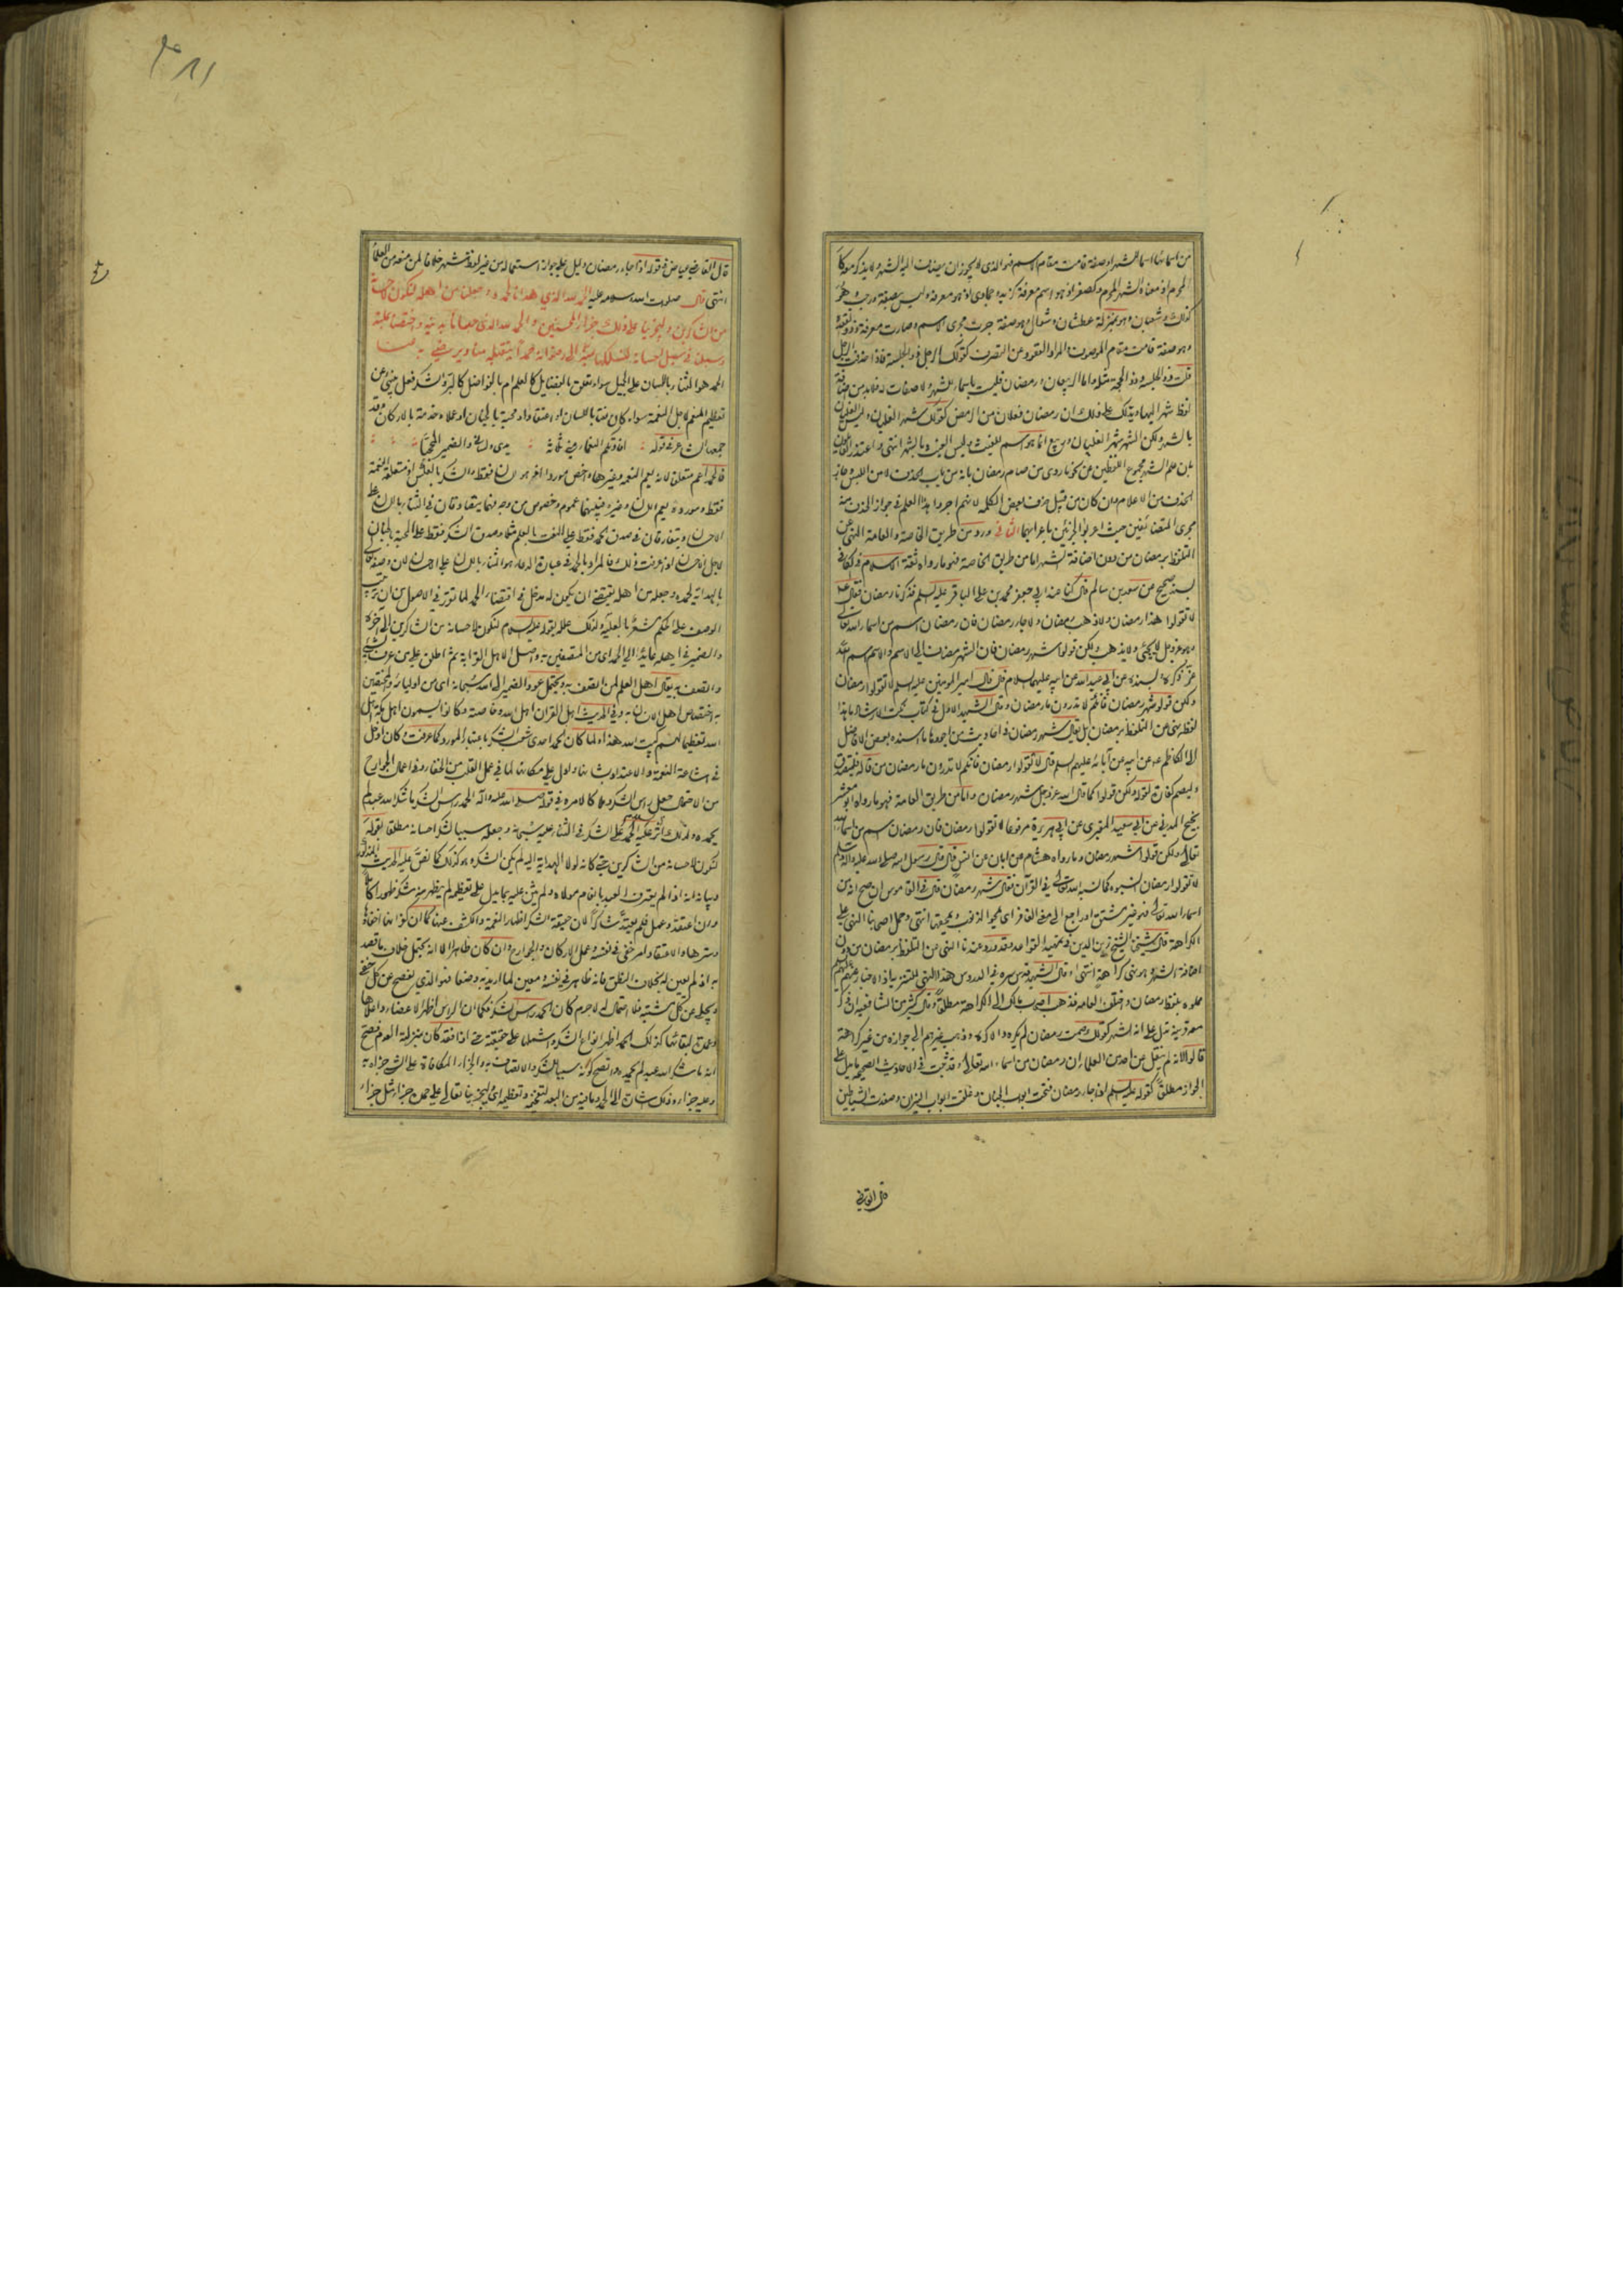 من اسمائها اسما للشهر او صفة قامت مقام الاسم فهو الذي لا يجوز ان يضاف اليه الشهر ولا يذكر معه كا
لمحرم اذ معناه الشهر المحرم وكصفر اذ هو اسم معرفة كزيد وجمادى اذ هو معرفة وليس بصفة ورجب وهو
كذلك وشعبان وهو بمنزلة عطشان وشوال وهو صفة جرت مجرى الاسم وصارت معرفة وذو القعدة
وهو صفة قامت مقام الموصوف والمراد القعود عن التصرف كقولك الرجل ذو الجلسة فاذا حذفت الرجل
قلت ذو الجلسة وذو الحجة مثله واما الربيعان ورمضان فليست باسماء للشهر ولا صفات له فلا بد من اضافة
لفظ شهر اليها ويدلك على ذلك ان رمضان فعلان من الرمض كقولك شهر الغليان وليس الغليان
بالشهر ولكن الشهر شهر الغليان وربيع انما هو اسم للغيث وليس الغيث بالشهر انتهى واعتذر القائلون
بان علم الشهر مجموع اللفظين عن نحو ما روي من صام رمضان بانه من باب الحذف لا من اللبس وجاز
الحذف من الاعلام وان كان من قبيل حذف بعض الكلمة لانهم اجروا هذا العلم في جواز الحذف منه
مجرى المتضائفين حيث اعربوا الجزئين باعرابهما الثاني ورد من طريق الخاصة والعامة النهي عن
التلفظ برمضان من دون اضافة الشهر اما من طريق الخاصة فهو ما رواه ثقة الاسلام في الكافي
بسند صحيح عن سعد بن سالم قال كنا عند ابي جعفر محمد بن علي الباقر عليه السلم فذكرنا رمضان فقال
لا تقولوا هذا رمضان ولا ذهب رمضان ولا جاء رمضان فان رمضان اسم من اسماء الله تعالى
وهو عز وجل لا يجيء ولا يذهب ولكن قولوا شهر رمضان فان الشهر مضاف الى الاسم والاسم اسم الله
عز ذكره وبسنده عن ابي عبد الله عن ابيه عليهما السلام قال قال امير المومنين عليه السلم لا تقولوا رمضان
ولكن قولوا شهر رمضان فانكم لا تدرون ما رمضان وقال الشهيد الاول في كتاب نكت الارشاد ما هذا
لفظه نهي عن التلفظ برمضان بل يقال شهر رمضان في احاديث من اجودها ما اسنده بعض الافاضل
الى الكاظم عن ابيه عن آبائه عليهم السلم قال لا تقولوا رمضان فانكم لا تدرون ما رمضان من قاله فليتصدق
وليصم كفارة لقوله ولكن قولوا كما قال الله عز وجل شهر رمضان واما من طريق العامة فهو ما رواه ابو معشر
نجيح المدني عن ابي سعيد المقبري عن ابي هريرة مرفوعا لا تقولوا رمضان فان رمضان اسم من اسماء الله
تعالى ولكن قولوا شهر رمضان وما رواه هشام عن ابان عن انس قال قال رسول الله صلى الله عليه وآله وسلم
لا تقولوا رمضان انسبوه كما نسبه الله تعالى في القرآن فقال شهر رمضان قال في القاموس ان صح انه من
اسماء الله تعالى فهو غير مشتق او راجع الى معنى الغافر اي يمحو الذنوب ويمحقها انتهى وحمل اصحابنا النهي على
الكراهة قال شيخنا الشيخ زين الدين في تمهيد القواعد وقد ورد عندنا النهي عن التلفظ برمضان من دون
اضافة الشهر وهو نهي كراهة انتهى وقال الشهيد قدس سره في الدروس هذا النهي للتنزيه اذ الاخبار عنهم عليهم السلم
مملوه بلفظ رمضان واختلف العامه فذهب اصحاب مالك الى الكراهة مطلقا وقال كثير من الشافعيه ان ذكر
معه قرينة تدل على انه الشهر كقولك صمت رمضان لم يكره والا كره وذهب غيرهم الى جوازه من غير كراهة
قالوا لانه لم ينقل عن احد من العلماء ان رمضان من اسماء الله تعالى وقد ثبت في الاحاديث الصحيحة ما يدل على
الجواز مطلقا كقوله عليه السلم اذا جاء رمضان فتحت ابواب الجنان وغلقت ابواب النيران وصفدت الشياطين
قال القاضي
قال القاضي عياض في قوله اذا جاء رمضان دليل على جواز استعماله من غير لفظة شهر خلافا لمن منعه من العلماء
انتهى قال صلوات الله وسلامه عليه الحمد لله الذي هدانا لحمده وجعلنا من اهله لنكون لاحسانه
من الشاكرين وليجزينا على ذلك جزاء المحسنين والحمد لله الذي حبانا بدينه واختصنا بملته
وسبلنا في سبل احسانه لنسلكها بمنه الى رضوانه حمدا يتقبله منا ويرضى به عنا
الحمد هو الثناء باللسان على الجميل سواء تعلق بالفضايل كالعلم ام بالفواضل كالبر والشكر فعل ينبئ عن
تعظيم المنعم لاجل النعمة سواء كان نعتا باللسان او اعتقادا ومحبة بالجنان او عملا وخدمة بالاركان وقد
جمعها الشاعر في قوله افادتكم النعماء مني ثلاثة يدي ولساني والضمير المحجبا
فالحمد اعم متعلقا لانه يعم النعمة وغيرها واخص موردا اذ هو اللسان فقط والشكر بالعكس اذ متعلقه النعمة
فقط ومورده يعم اللسان وغيره فبينهما عموم وخصوص من وجه فهما يتصادقان في الثناء باللسان على
الاحسان ويتفارقان في صدق الحمد فقط على النعت بالعلم مثلا وصدق الشكر فقط على المحبة بالجنان
لاجل الاحسان اذا عرفت ذلك فالمراد بالحمد في عبارة الدعاء هو الثناء باللسان على احسان لان وصفه تعالى
بالهداية لحمده وجعله من اهله يقتضي ان يكون له مدخل في اقتضاء الحمد لما تقرر في الاصول من ان ترتيب
الوصف على الحكم مشعر بالعلية ولذلك علله بقوله عليه السلام لنكون لاحسانه من الشاكرين الى آخره
والضمير في اهله عايد الى الحمد اي من المتصفين به واصل الاهل القرابة ثم اطلق على من عرف بشيء
واتصف به يقال اهل العلم لمن اتصف به ويحتمل عود الضمير الى الله سبحانه اي من اوليائه والمختصين
به اختصاص اهل الانسان به وفي الحديث اهل القران اهل الله وخاصته وكانوا يسمون اهل مكة اهل
الله تعظيما لهم كبيت الله هذا ولما كان الحمد احدى شعب الشكر باعتبار المورد كما عرفت وكان ادخل
في اشاعة النعمة والاعتداد بشانها وادل على مكانها لما في عمل القلب من الخفاء وفي اعمال الجوارح
من الاحتمال جعل راس الشكر وملاكا لامره في قوله صلى الله عليه وآله الحمد راس الشكر ما شكر الله عبد لم
يحمده ولذلك آثر عليه السلم الحمد على الشكر في الثناء عليه سبحانه وجعله سببا لشكر احسانه مطلقا بقوله
لنكون لاحسانه من الشاكرين حتى كانه لولا الهداية اليه لم يكن الشكر موجودا كما نص عليه الحديث المذكور
وبيانه انه اذا لم يعترف العبد بانعام مولاه ولم يثن عليه بما يدل على تعظيمه لم يظهر منه شكر ظهورا كاملا
وان اعتقد وعمل فلم يعد شاكرا لان حقيقة الشكر اظهار النعمة والكشف عنها كما ان كفرانها اخفاؤها
وسترها والاعتقاد امر خفي في نفسه وعمل الاركان والجوارح وان كان ظاهرا الا انه يحتمل خلاف ما قصد
به اذ لم يعين له بخلاف النطق فانه ظاهر في نفسه ومعين لما اريد به وضعا فهو الذي يفصح عن كل خفي
ويجلي عن كل مشتبه فلا احتمال له لا جرم كان الحمد راس الشكر فكما ان الراس اظهر الاعضاء واعلاها
وعمدة لبقائها كذلك الحمد اظهر انواع الشكر واشملها على حقيقته حتى اذا فقد كان بمنزلة العدم فصح
انه ما شكر الله عبد لم يحمده واتضح كونه سببا للشكر والاتصاف به والجزاء المكافاة على الشيء جزاه به
وعليه جزاء وذلك اشارة الى الحمد وما فيه من البعد لتفخيمه وتعظيمه اي وليجزينا تعالى على حمده جزاء مثل جزاء